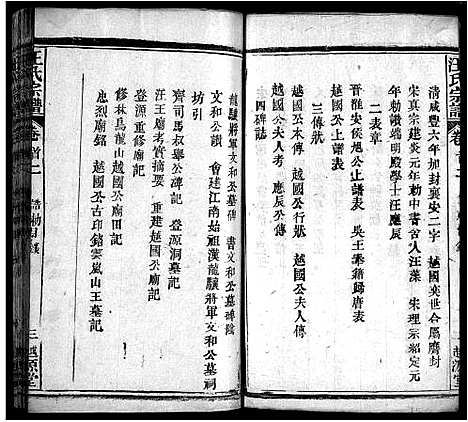 汪氏宗譜 卷首二
清咸豐六年加封襄安二字 越國奕世合屬封
宋真宗建炎元年中書舍人汪藻 宋理宗紹定元
年勅諭端明殿學士汪應辰
二表章
晉淮安侯旭公上譜表 吳王奏籍歸唐表
越國公上譜表
三傳狀
越國公本傳 越國公行狀 越國公夫人傳
越國公夫人考 應辰公傳
四碑誌
龍驤將軍文和公墓碑 書文和公墓碑陰
文和公讚 會建江南始祖漢龍驤將軍文和公墓祠
坊引
齊司馬叔舉公碑記 登源洞墓記
汪王廟考實摘要 重建越國公廟記
登源重修廟記
修林烏龍山越國公廟田記
忠烈廟銘 越國公古印銘 雲嵐山王墓記
汪氏宗譜 卷首二 誥勅目錄 三 越源堂